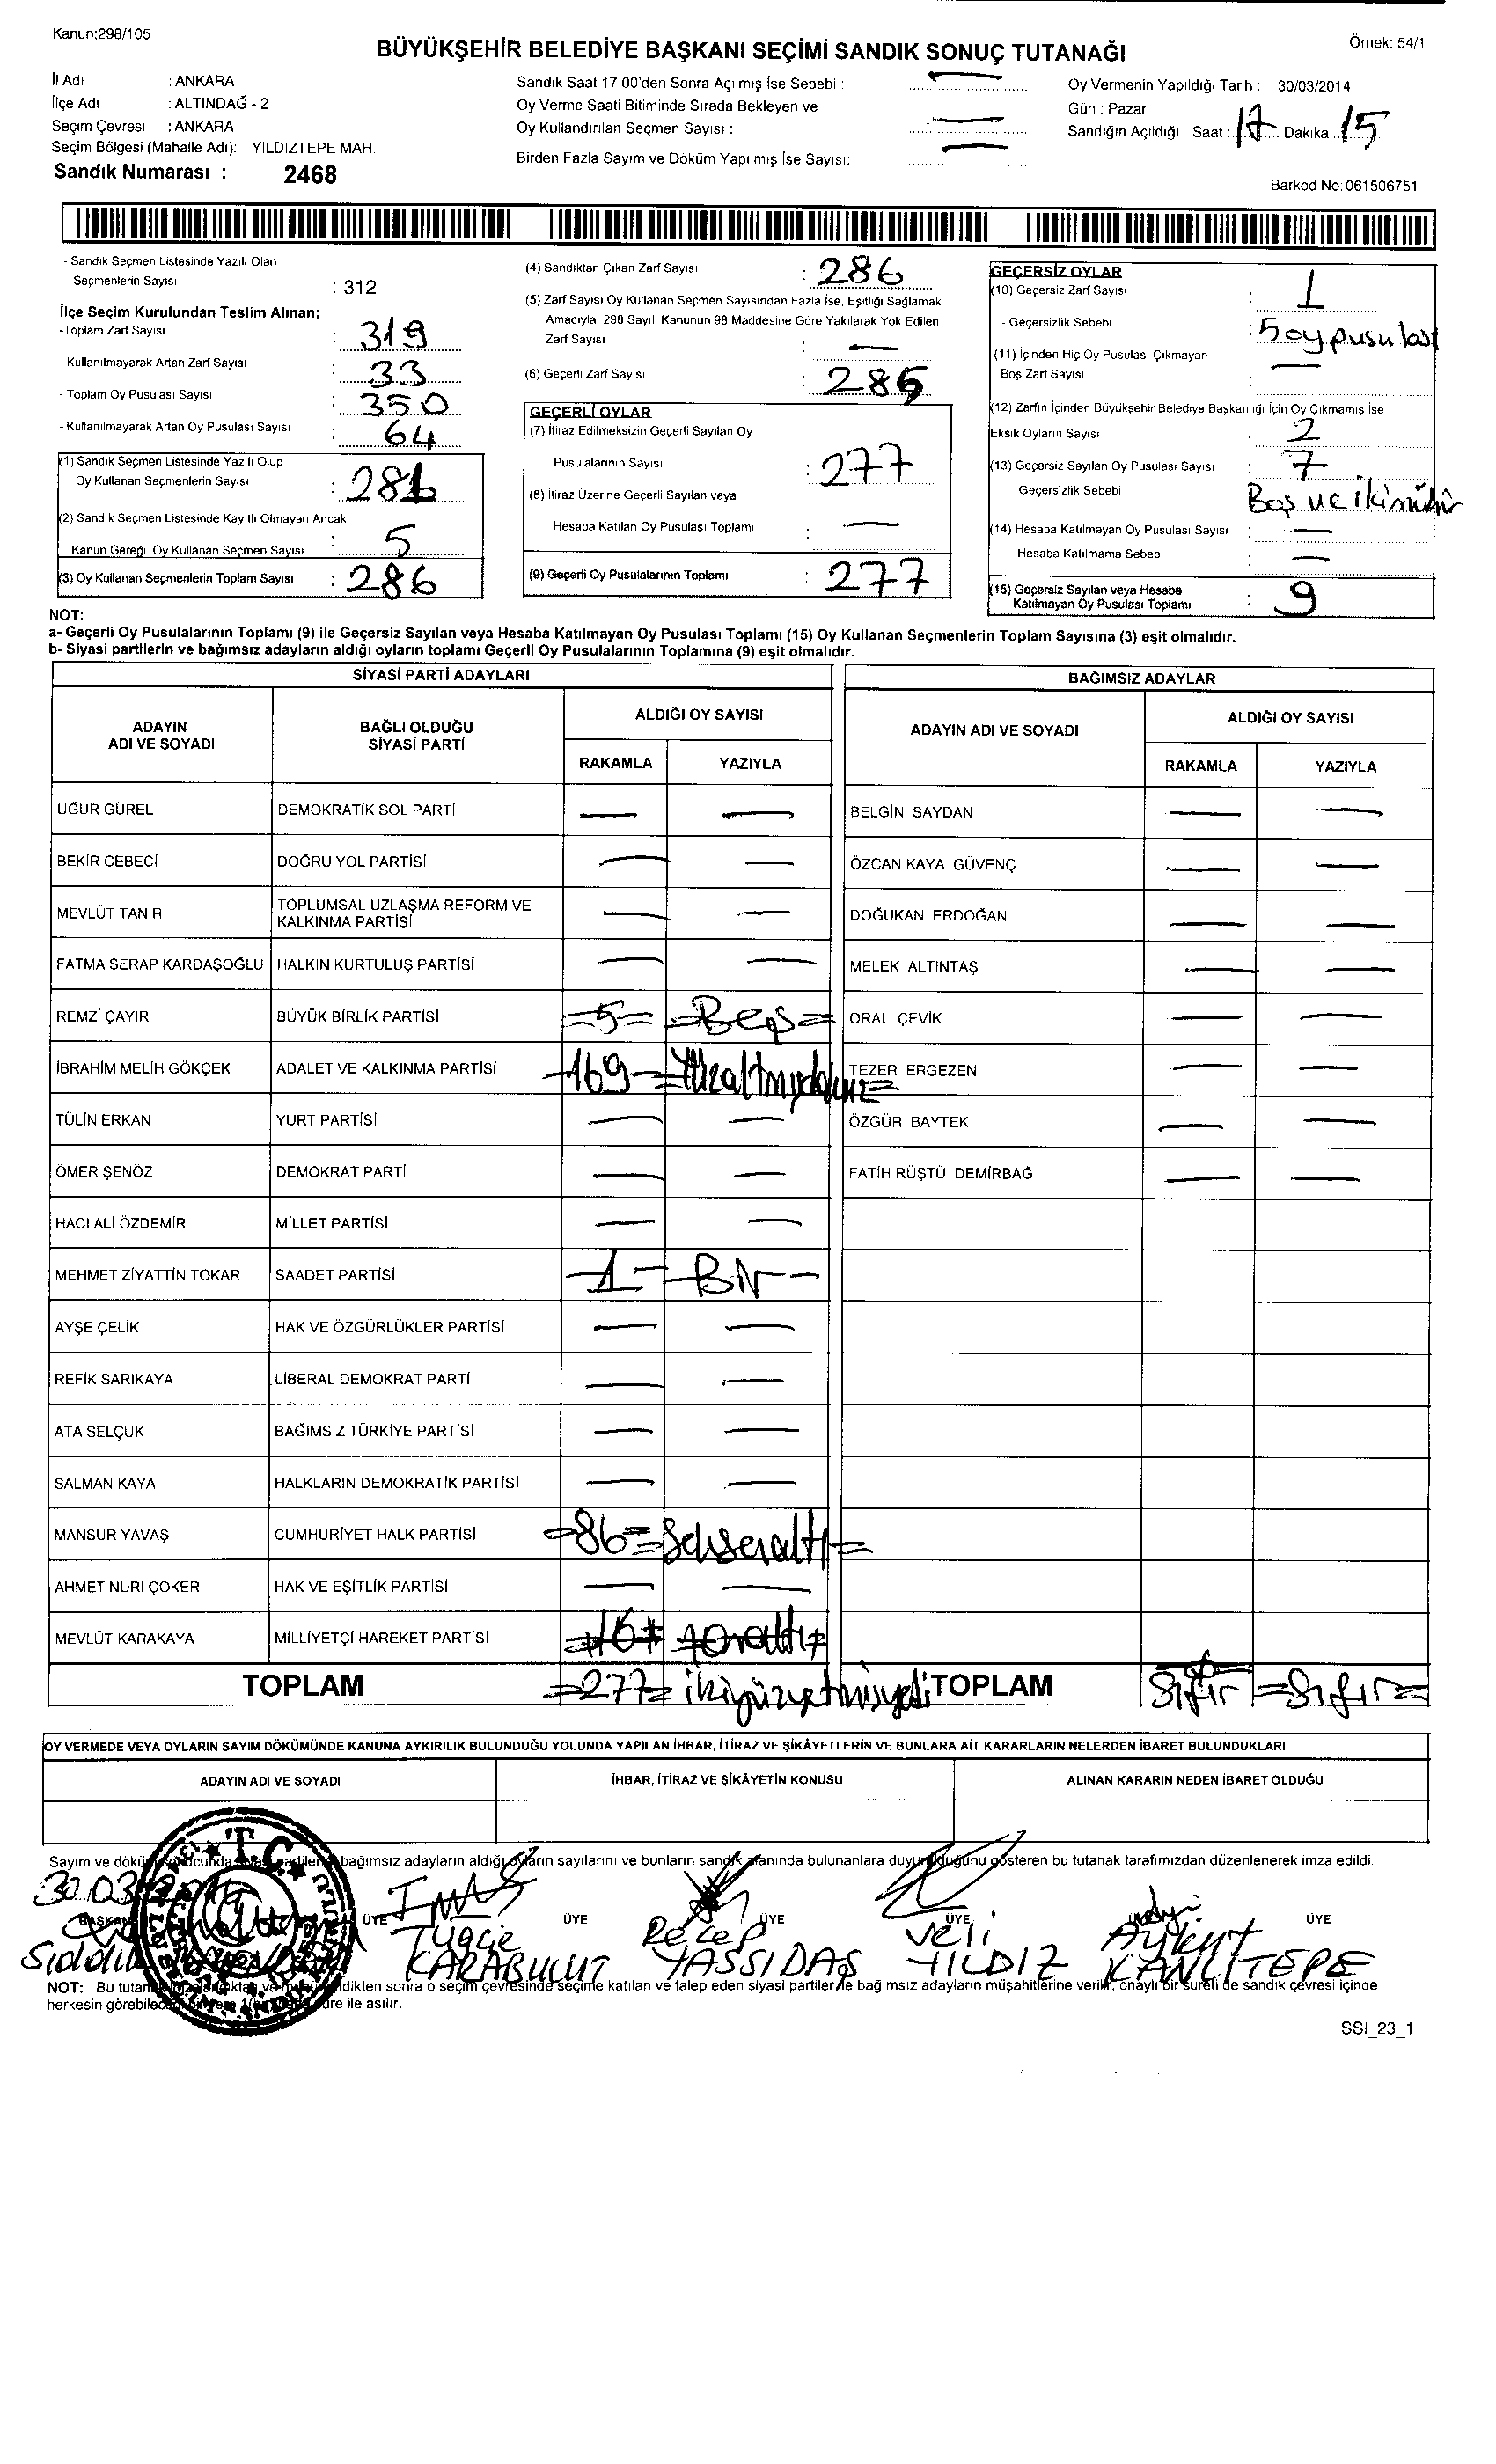 Kanun;298/105
Örnek: 54/1
BÜYÜKŞEHİR BELEDİYE BAŞKANI SEÇİMİ SANDIK SONUÇ TUTANAĞI
İl Adı : ANKARA
İlçe Adı : ALTINDAĞ - 2
Seçim Çevresi : ANKARA
Seçim Bölgesi (Mahalle Adı): YILDIZTEPE MAH.
Sandık Numarası : 2468
Sandık Saat 17.00'den Sonra Açılmış İse Sebebi : —
Oy Verme Saati Bitiminde Sırada Bekleyen ve
Oy Kullandırılan Seçmen Sayısı : —
Birden Fazla Sayım ve Döküm Yapılmış İse Sayısı: —
Oy Vermenin Yapıldığı Tarih : 30/03/2014
Gün : Pazar
Sandığın Açıldığı Saat : 17 Dakika: 15
Barkod No: 061506751
- Sandık Seçmen Listesinde Yazılı Olan
Seçmenlerin Sayısı : 312
İlçe Seçim Kurulundan Teslim Alınan;
-Toplam Zarf Sayısı : 319
- Kullanılmayarak Artan Zarf Sayısı : 33
- Toplam Oy Pusulası Sayısı : 350
- Kullanılmayarak Artan Oy Pusulası Sayısı : 64
(1) Sandık Seçmen Listesinde Yazılı Olup
Oy Kullanan Seçmenlerin Sayısı : 281
(2) Sandık Seçmen Listesinde Kayıtlı Olmayan Ancak
Kanun Gereği Oy Kullanan Seçmen Sayısı : 5
(3) Oy Kullanan Seçmenlerin Toplam Sayısı : 286
(4) Sandıktan Çıkan Zarf Sayısı : 286
(5) Zarf Sayısı Oy Kullanan Seçmen Sayısından Fazla İse, Eşitliği Sağlamak
Amacıyla; 298 Sayılı Kanunun 98.Maddesine Göre Yakılarak Yok Edilen
Zarf Sayısı : —
(6) Geçerli Zarf Sayısı : 285
GEÇERLİ OYLAR
(7) İtiraz Edilmeksizin Geçerli Sayılan Oy
Pusulalarının Sayısı : 277
(8) İtiraz Üzerine Geçerli Sayılan veya
Hesaba Katılan Oy Pusulası Toplamı : —
(9) Geçerli Oy Pusulalarının Toplamı : 277
GEÇERSİZ OYLAR
(10) Geçersiz Zarf Sayısı : 1
- Geçersizlik Sebebi : 5 oy pusulası
(11) İçinden Hiç Oy Pusulası Çıkmayan
Boş Zarf Sayısı : —
(12) Zarfın İçinden Büyükşehir Belediye Başkanlığı İçin Oy Çıkmamış İse
Eksik Oyların Sayısı : 2
(13) Geçersiz Sayılan Oy Pusulası Sayısı : 7
Geçersizlik Sebebi Boş ve iki mühür
(14) Hesaba Katılmayan Oy Pusulası Sayısı : —
- Hesaba Katılmama Sebebi : —
(15) Geçersiz Sayılan veya Hesaba
Katılmayan Oy Pusulası Toplamı : 9
NOT:
a- Geçerli Oy Pusulalarının Toplamı (9) ile Geçersiz Sayılan veya Hesaba Katılmayan Oy Pusulası Toplamı (15) Oy Kullanan Seçmenlerin Toplam Sayısına (3) eşit olmalıdır.
b- Siyasi partilerin ve bağımsız adayların aldığı oyların toplamı Geçerli Oy Pusulalarının Toplamına (9) eşit olmalıdır.
SİYASİ PARTİ ADAYLARI
ADAYIN ADI VE SOYADI
BAĞLI OLDUĞU SİYASİ PARTİ
ALDIĞI OY SAYISI
RAKAMLA YAZIYLA
UĞUR GÜREL DEMOKRATİK SOL PARTİ — —
BEKİR CEBECİ DOĞRU YOL PARTİSİ — —
MEVLÜT TANIR TOPLUMSAL UZLAŞMA REFORM VE KALKINMA PARTİSİ — —
FATMA SERAP KARDAŞOĞLU HALKIN KURTULUŞ PARTİSİ — —
REMZİ ÇAYIR BÜYÜK BİRLİK PARTİSİ =5= =Beş=
İBRAHİM MELİH GÖKÇEK ADALET VE KALKINMA PARTİSİ -169-
TÜLİN ERKAN YURT PARTİSİ — —
ÖMER ŞENÖZ DEMOKRAT PARTİ — —
HACI ALİ ÖZDEMİR MİLLET PARTİSİ — —
MEHMET ZİYATTİN TOKAR SAADET PARTİSİ -1- -Bir-
AYŞE ÇELİK HAK VE ÖZGÜRLÜKLER PARTİSİ — —
REFİK SARIKAYA LİBERAL DEMOKRAT PARTİ — —
ATA SELÇUK BAĞIMSIZ TÜRKİYE PARTİSİ — —
SALMAN KAYA HALKLARIN DEMOKRATİK PARTİSİ — —
MANSUR YAVAŞ CUMHURİYET HALK PARTİSİ =86= =Seksenaltı=
AHMET NURİ ÇOKER HAK VE EŞİTLİK PARTİSİ — —
MEVLÜT KARAKAYA MİLLİYETÇİ HAREKET PARTİSİ =16= =Onaltı=
TOPLAM =277= ikiyüzyetmişyedi
BAĞIMSIZ ADAYLAR
ADAYIN ADI VE SOYADI
ALDIĞI OY SAYISI
RAKAMLA YAZIYLA
BELGİN SAYDAN — —
ÖZCAN KAYA GÜVENÇ — —
DOĞUKAN ERDOĞAN — —
MELEK ALTINTAŞ — —
ORAL ÇEVİK — —
TEZER ERGEZEN — —
ÖZGÜR BAYTEK — —
FATİH RÜŞTÜ DEMİRBAĞ — —
TOPLAM Sıfır =Sıfır=
OY VERMEDE VEYA OYLARIN SAYIM DÖKÜMÜNDE KANUNA AYKIRILIK BULUNDUĞU YOLUNDA YAPILAN İHBAR, İTİRAZ VE ŞİKÂYETLERİN VE BUNLARA AİT KARARLARIN NELERDEN İBARET BULUNDUKLARI
ADAYIN ADI VE SOYADI
İHBAR, İTİRAZ VE ŞİKÂYETİN KONUSU
ALINAN KARARIN NEDEN İBARET OLDUĞU
T.C.
Sayım ve bağımsız adayların aldığı oyların sayılarını ve bunların sandık alanında bulunanlara duyurulduğunu gösteren bu tutanak tarafımızdan düzenlenerek imza edildi.
BAŞKAN ÜYE ÜYE ÜYE ÜYE ÜYE
Tuğçe KARABULUT
Recep YASSIDAŞ
Veli YILDIZ
Aykut KANLITEPE
NOT: Bu sonra o seçim çevresinde seçime katılan ve talep eden siyasi partiler ile bağımsız adayların müşahitlerine verilir, onaylı bir sureti de sandık çevresi içinde
herkesin süre ile asılır.
SSI_23_1